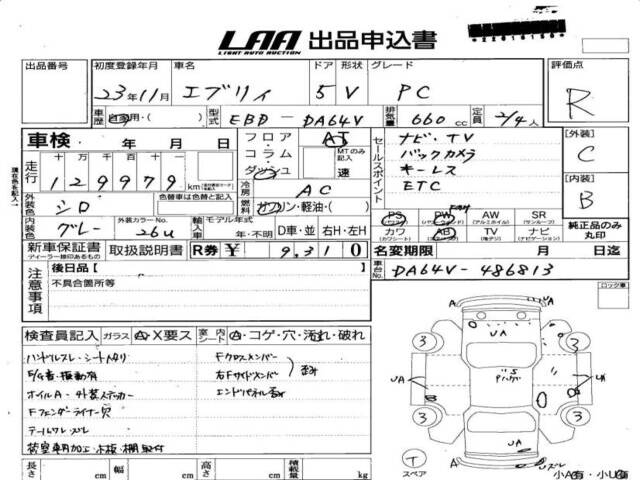 LAA 出品申込書
LIGHT AUTO AUCTION
出品番号 初度登録年月 車名 ドア 形状 グレード 評価点
23年11月 エブリィ 5 V PC R
車歴 自家用・( ) 型式 EBD - DA64V 排気量 660 cc 定員 2/4人
車検 年 月 日
フロア AT
コラム MTのみ記入
ダッシュ 速
セールスポイント
ナビ・TV
バックカメラ
キーレス
ETC
[外装] C
[内装] B
走行 十万千百十 129979 km
冷房 AC
燃料 ガソリン・軽油・( )
外装色 シロ 色替車は色替と記入
内装色 グレー 外装カラーNo. 26U 輸入車 モデル年式 年・不明 D車・並 右H・左H
PS PW AW SR
(パワステ) (アルミホイル) (サンルーフ)
カワ AB TV ナビ
(カワシート) (地デジ) (ナビゲーション)
純正品のみ丸印
新車保証書 取扱説明書 R券 ¥ 9,310
ディーラー捺印あるもの
名変期限 月 日迄
車台No. DA64V-486813
注意事項
後日品 [ ]
不具合箇所等
ロック車
検査員記入 ガラス A・X要ス 室内 シート A・コゲ・穴・汚れ・破れ
ハンドルスレ・シートヘタリ Fクロスメンバー
右Fサイドメンバー 歪み
オイルA・外装ステッカー エンドパネル歪み
Fフェンダーライナー穴
荷室専用加工・木板・棚取付
長さ cm 幅 cm 高さ cm 積載量 kg
A A
U UA
3 3
UA UA
B
3 3
UA
T スペア A A
小A有・小U有